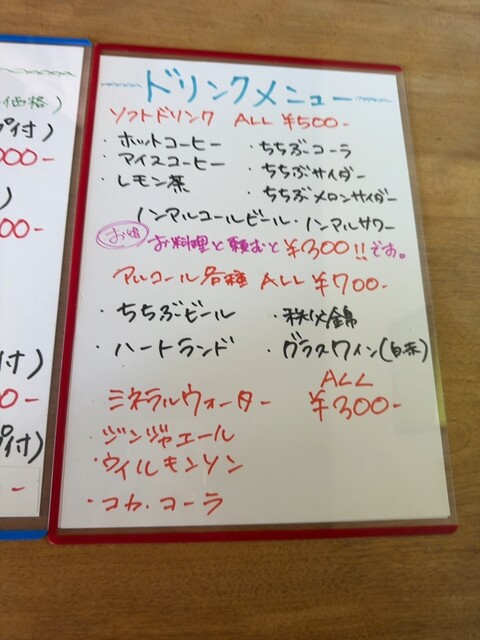 価格)
付)
000-
)
00-
付)
0-
付)
-
ドリンクメニュー
ソフトドリンク ALL ¥500-
・ホットコーヒー ・ちちぶコーラ
・アイスコーヒー ・ちちぶサイダー
・レモン茶 ・ちちぶメロンサイダー
ノンアルコールビール・ノンアルサワー
お得 お料理と頼むと ¥300!!です。
アルコール各種 ALL ¥700-
・ちちぶビール ・秩父錦
・ハートランド ・グラスワイン(白・赤)
ミネラルウォーター ALL ¥300-
・ジンジャエール
・ウィルキンソン
・コカ・コーラ